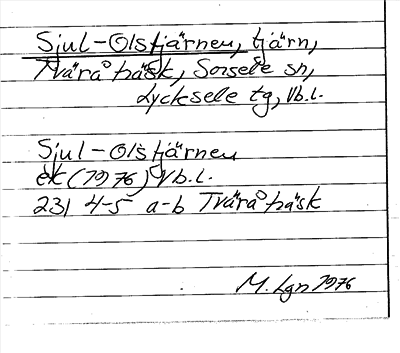 Sjul-Olstjärnen, tjärn,
Tväråträsk, Sorsele sn,
Lycksele tg, Vb.l.
Sjul-Olstjärnen
ek (1976) Vb.l.
231 4-5 a-b Tväråträsk
M. Lgn 1976